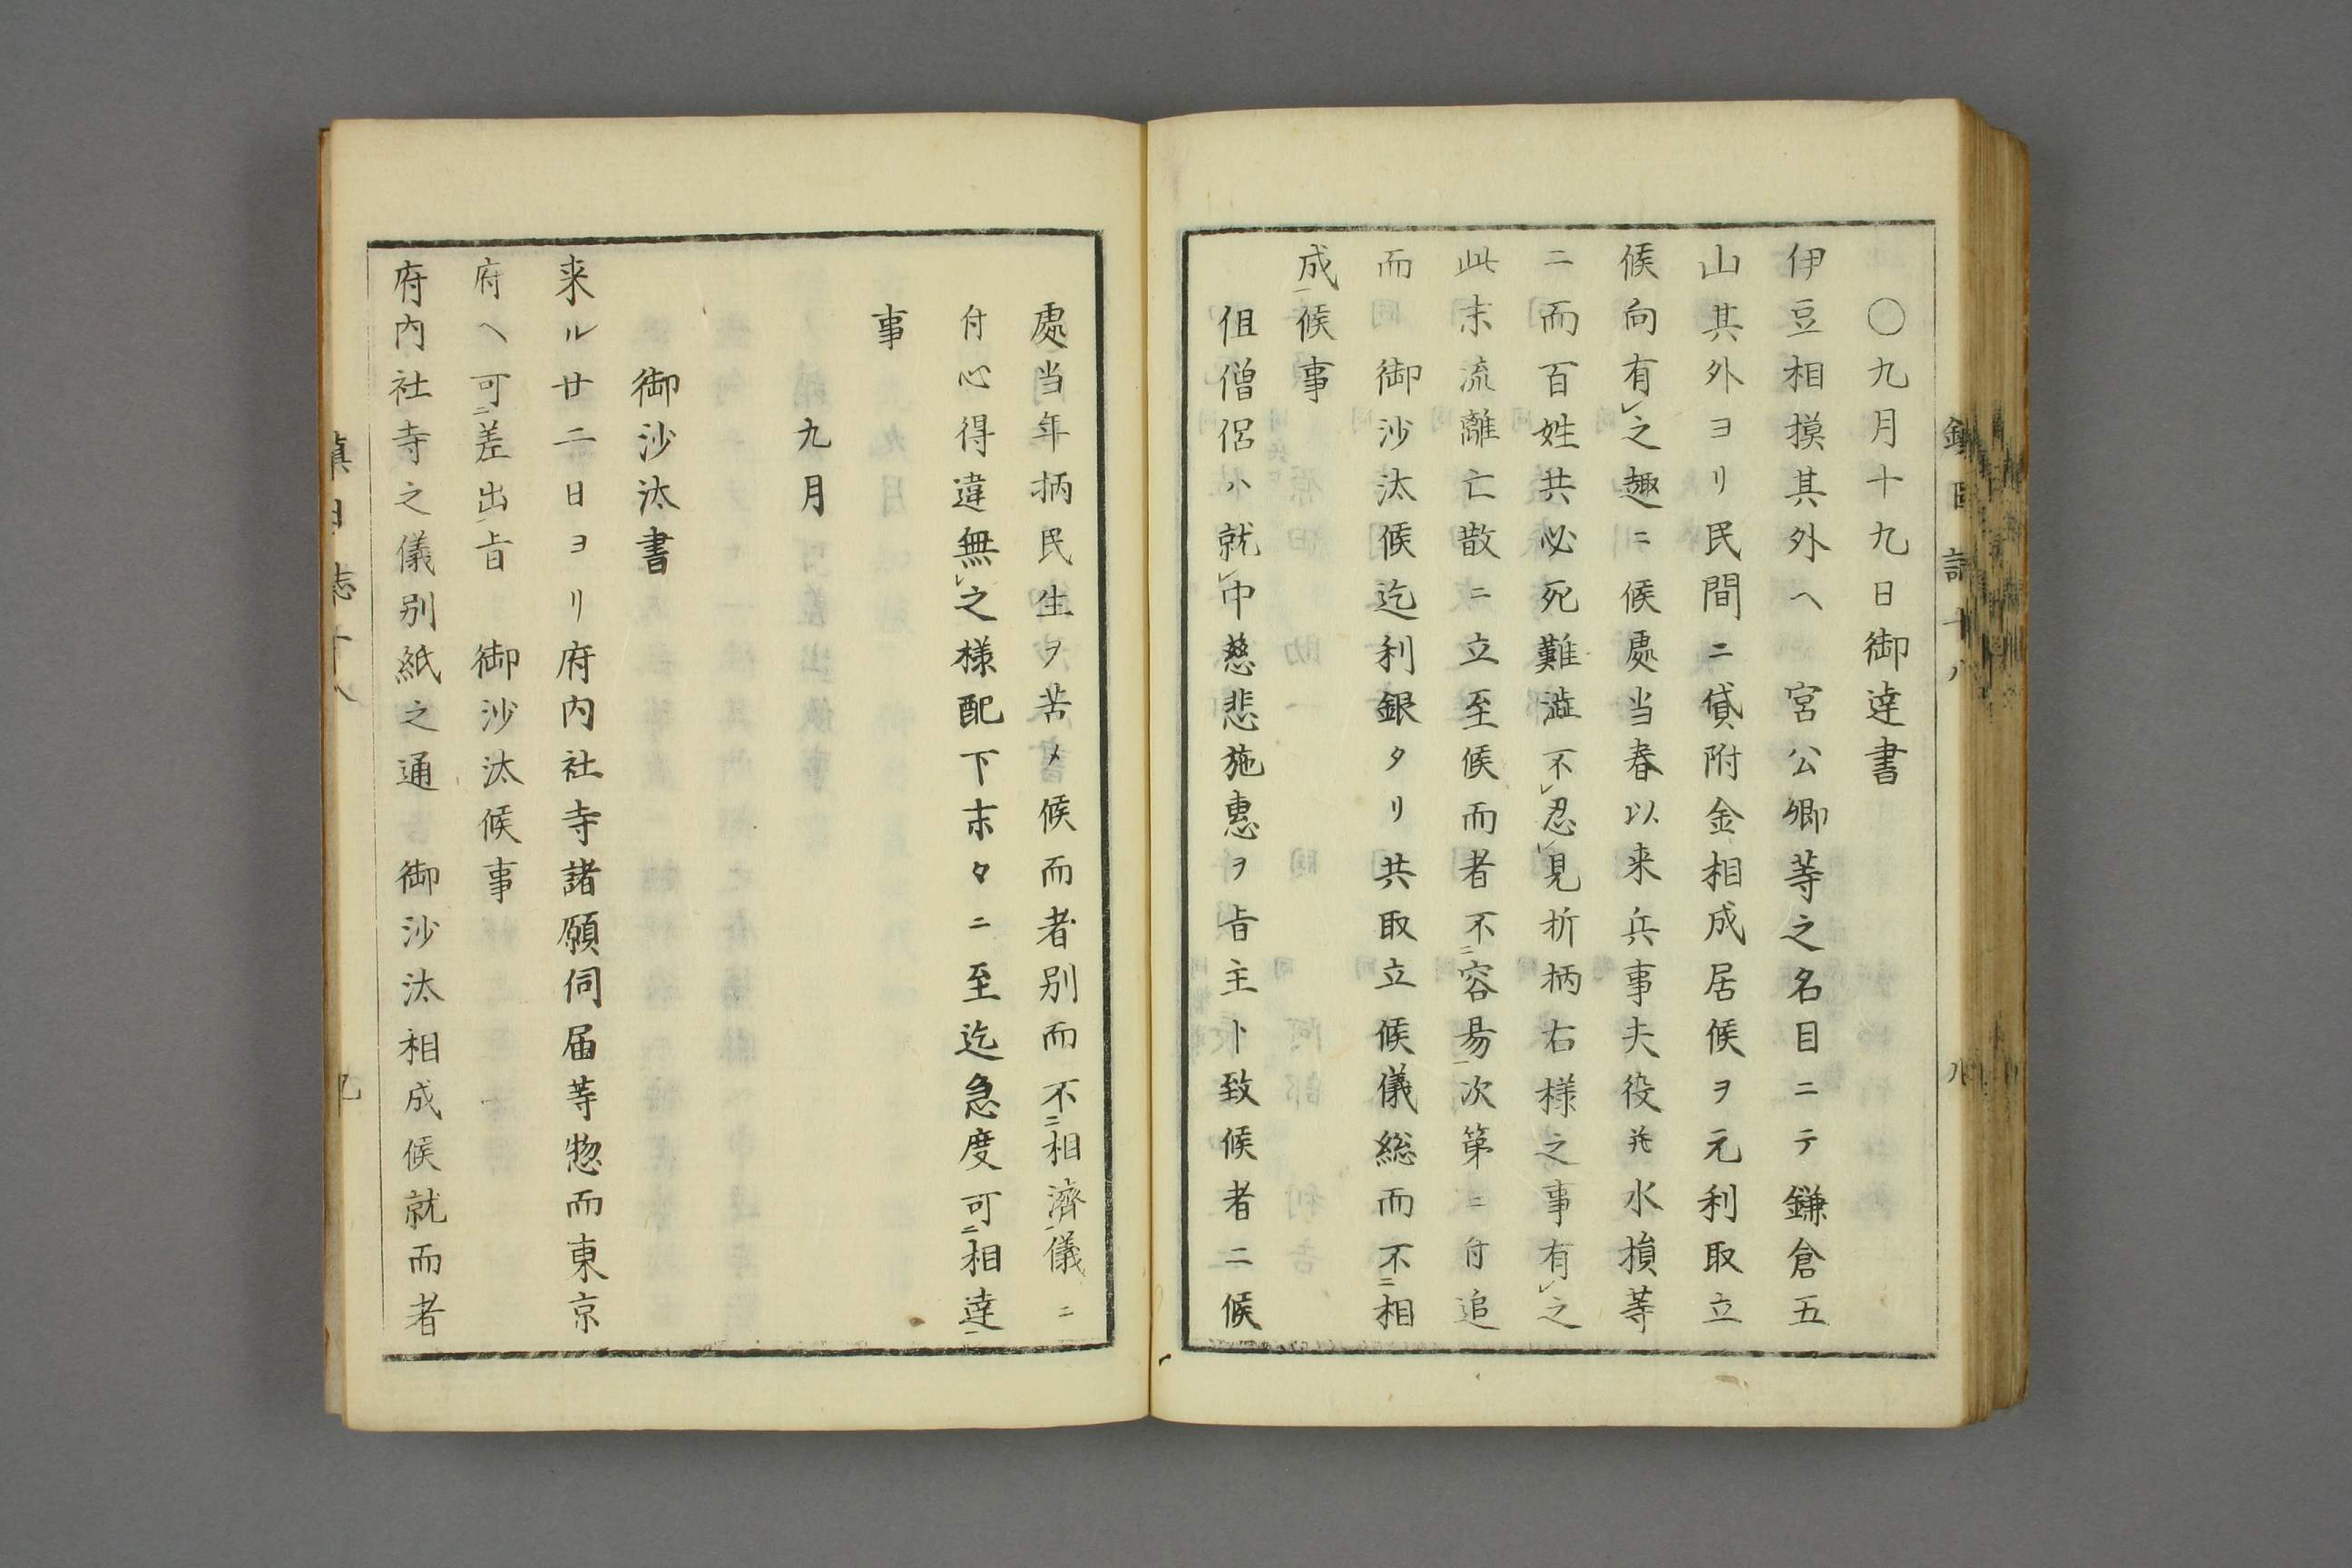 〇九月十九日御達書
伊豆相摸其外ヘ　宮公卿等之名目ニテ鎌倉五
山其外ヨリ民間ニ貸附金相成居候ヲ元利取立
候向有㆑之趣ニ候處当春以来兵事夫役並水損等
ニ而百姓共必死難澁不㆑忍㆑見折柄右様之事有㆑之
此末流離亡散ニ立至候而者不㆓容易㆒次第ニ付追
而　御沙汰候迄利銀タリ共取立候儀総而不㆓相
成㆒候事
但僧侶ハ就㆑中慈悲施惠ヲ旨主ト致候者ニ候
處当年柄民生ヲ苦メ候而者別而不㆓相濟㆒儀ニ
付心得違無㆑之様配下末々ニ至迄急度可㆓相達㆒
事
九月
御沙汰書
来ル廿二日ヨリ府内社寺諸願伺届等惣而東京
府ヘ可㆓差出㆒旨　御沙汰候事
府内社寺之儀別紙之通　御沙汰相成候就而者
鎮日誌十八
八
鎮日誌十八
九